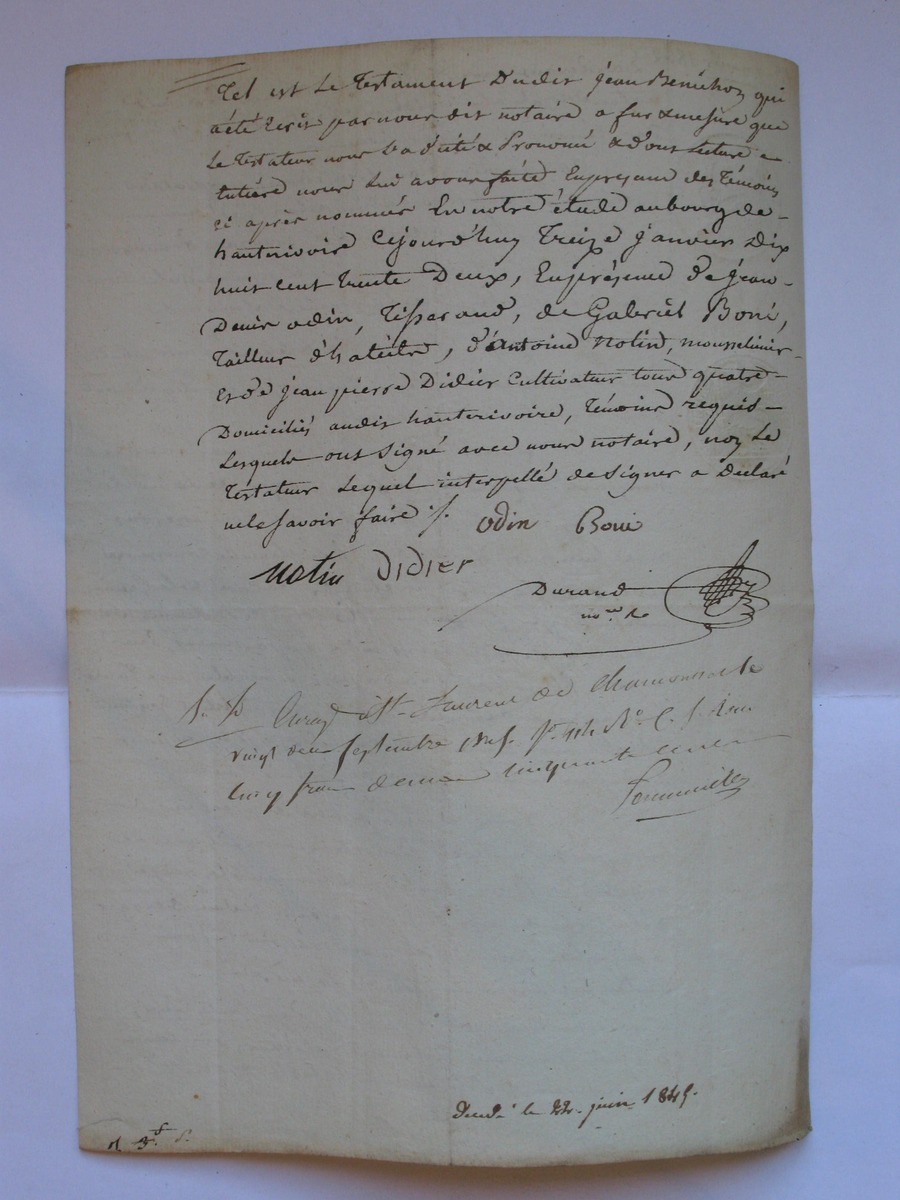 Tel est le testament dudit jean Benichon qui
a été écrit par nous dit notaire a fur & mesure que
le testateur nous l'a dicté & prononcé & dont lecture e-
tntière nous lui avons faite en présence des témoins
ci après nommés en notre étude au bourg de-
hauterivoire cejourd'huy treize janvier dix
huit cent trente deux, en présence de jean-
Denis odin, tisserand, de Gabriël Boné,
tailleur d'habits, d'antoine Notin, mousselinier-
et de jean pierre Didier cultivateur tous quatre-
Domiciliés audit hauterivoire, témoins requis-
lesquels ont signé avec nous notaire, non le
testateur lequel interpellé de signer a déclaré
ne le savoir faire ./.
odin Boné
Notin Didier
Durand
no.re
à St. Laurent de Chamousset le
vingt deux septembre
cinq francs cinquante
décédé le 22. juin 1845.